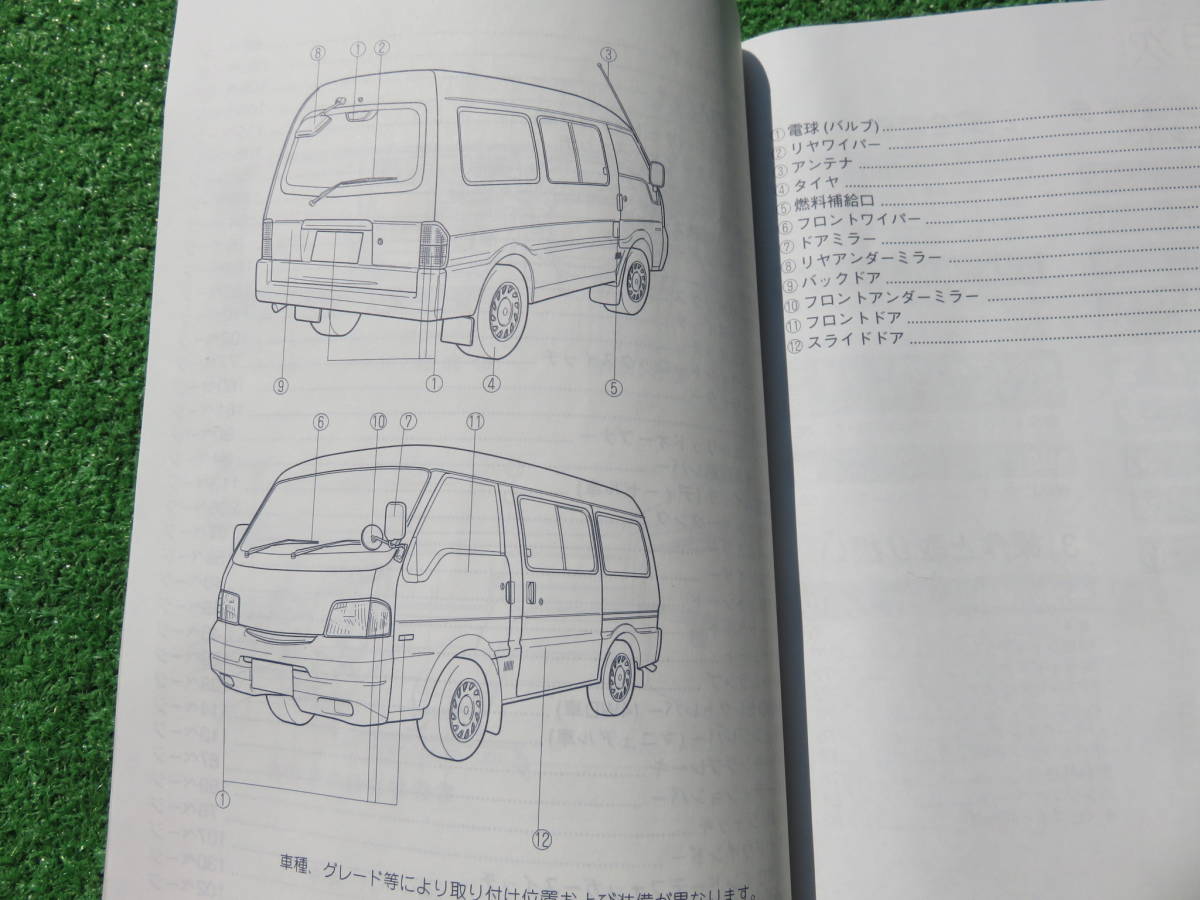 ⑧ ① ② ③
⑨ ① ④ ⑤
⑥ ⑩ ⑦ ⑪
① ⑫
車種、グレード等により取り付け位置および装備が異なります。
①電球(バルブ)
②リヤワイパー
③アンテナ
④タイヤ
⑤燃料補給口
⑥フロントワイパー
⑦ドアミラー
⑧リヤアンダーミラー
⑨バックドア
⑩フロントアンダーミラー
⑪フロントドア
⑫スライドドア